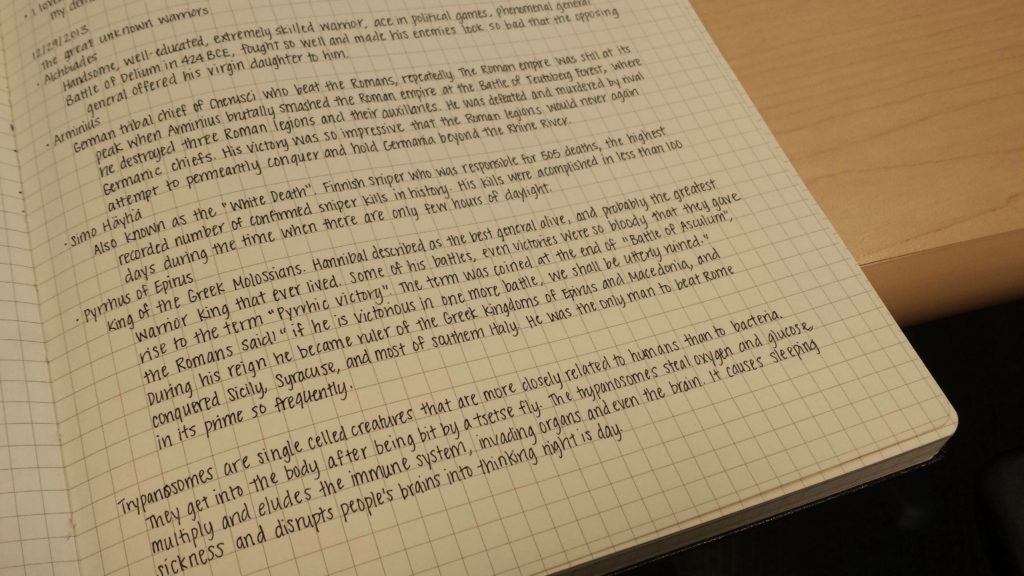 · I love
my
12/29/2013
The great unknown warriors
Alcibiades
Handsome, well-educated, extremely skilled warrior, ace in political games, phenomenal general
Battle of Delium in 424 BCE, fought so well and made his enemies look so bad that the opposing
general offered his virgin daughter to him.
· Arminius
German tribal chief of Cherusci who beat the Romans, repeatedly. The Roman empire was still at its
peak when Arminius brutally smashed the Roman empire at the Battle of Teutoberg forest, where
he destroyed three Roman legions and their auxillaries. He was defeated and murdered by rival
Germanic chiefs. His victory was so impressive that the Roman legions would never again
attempt to permeantly conquer and hold Germania beyond the Rhine River.
· Simo Häyhä
Also known as the "White Death". Finnish sniper who was responsible for 505 deaths, the highest
recorded number of confirmed sniper kills in history. His kills were acomplished in less than 100
days during the time when there are only few hours of daylight.
· Pyrrhus of Epirus
King of the Greek Molossians. Hannibal described as the best general alive, and probably the greatest
warrior king that ever lived. Some of his battles, even victories were so bloody that they gave
rise to the term "Pyrrhic victory". The term was coined at the end of "Battle of Asculum",
the Romans said "if he is victorious in one more battle, we shall be utterly ruined."
During his reign he became ruler of the Greek kingdoms of Epirus and Macedonia, and
conquered Sicily, Syracuse, and most of southern Italy. He was the only man to beat Rome
in its prime so frequently.
Trypanosomes are single celled creatures that are more closely related to humans than to bacteria.
They get into the body after being bit by a tsetse fly. The trypanosomes steal oxygen and glucose,
multiply and eludes the immune system, invading organs and even the brain. It causes sleeping
sickness and disrupts people's brains into thinking night is day.